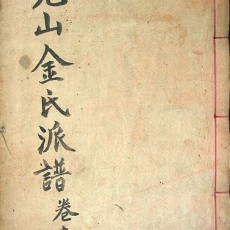 光山金氏派譜
卷